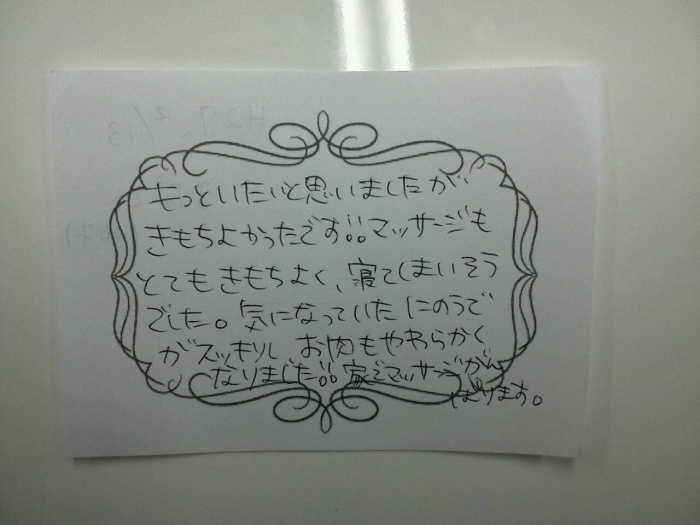 もっといたいと思いましたが
きもちよかったです!!マッサージも
とてもきもちよく、寝てしまいそう
でした。気になっていたにのうで
がスッキリし お肉もやわらかく
なりました!!家でマッサージがん
ばります。